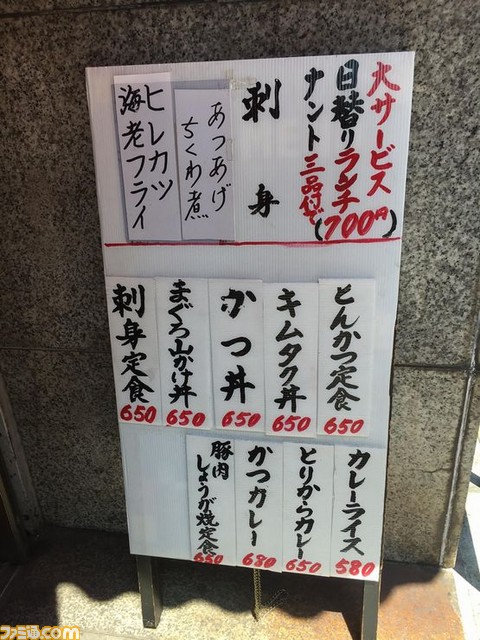 大サービス
日替りランチ
ナント三品付で(700円)
刺身
あつあげ
ちくわ煮
ヒレカツ
海老フライ
とんかつ定食
650
キムタク丼
650
かつ丼
650
まぐろ山かけ丼
650
刺身定食
650
カレーライス
580
とりからカレー
650
かつカレー
680
豚肉
しょうが焼定食
650
ファミ通.com